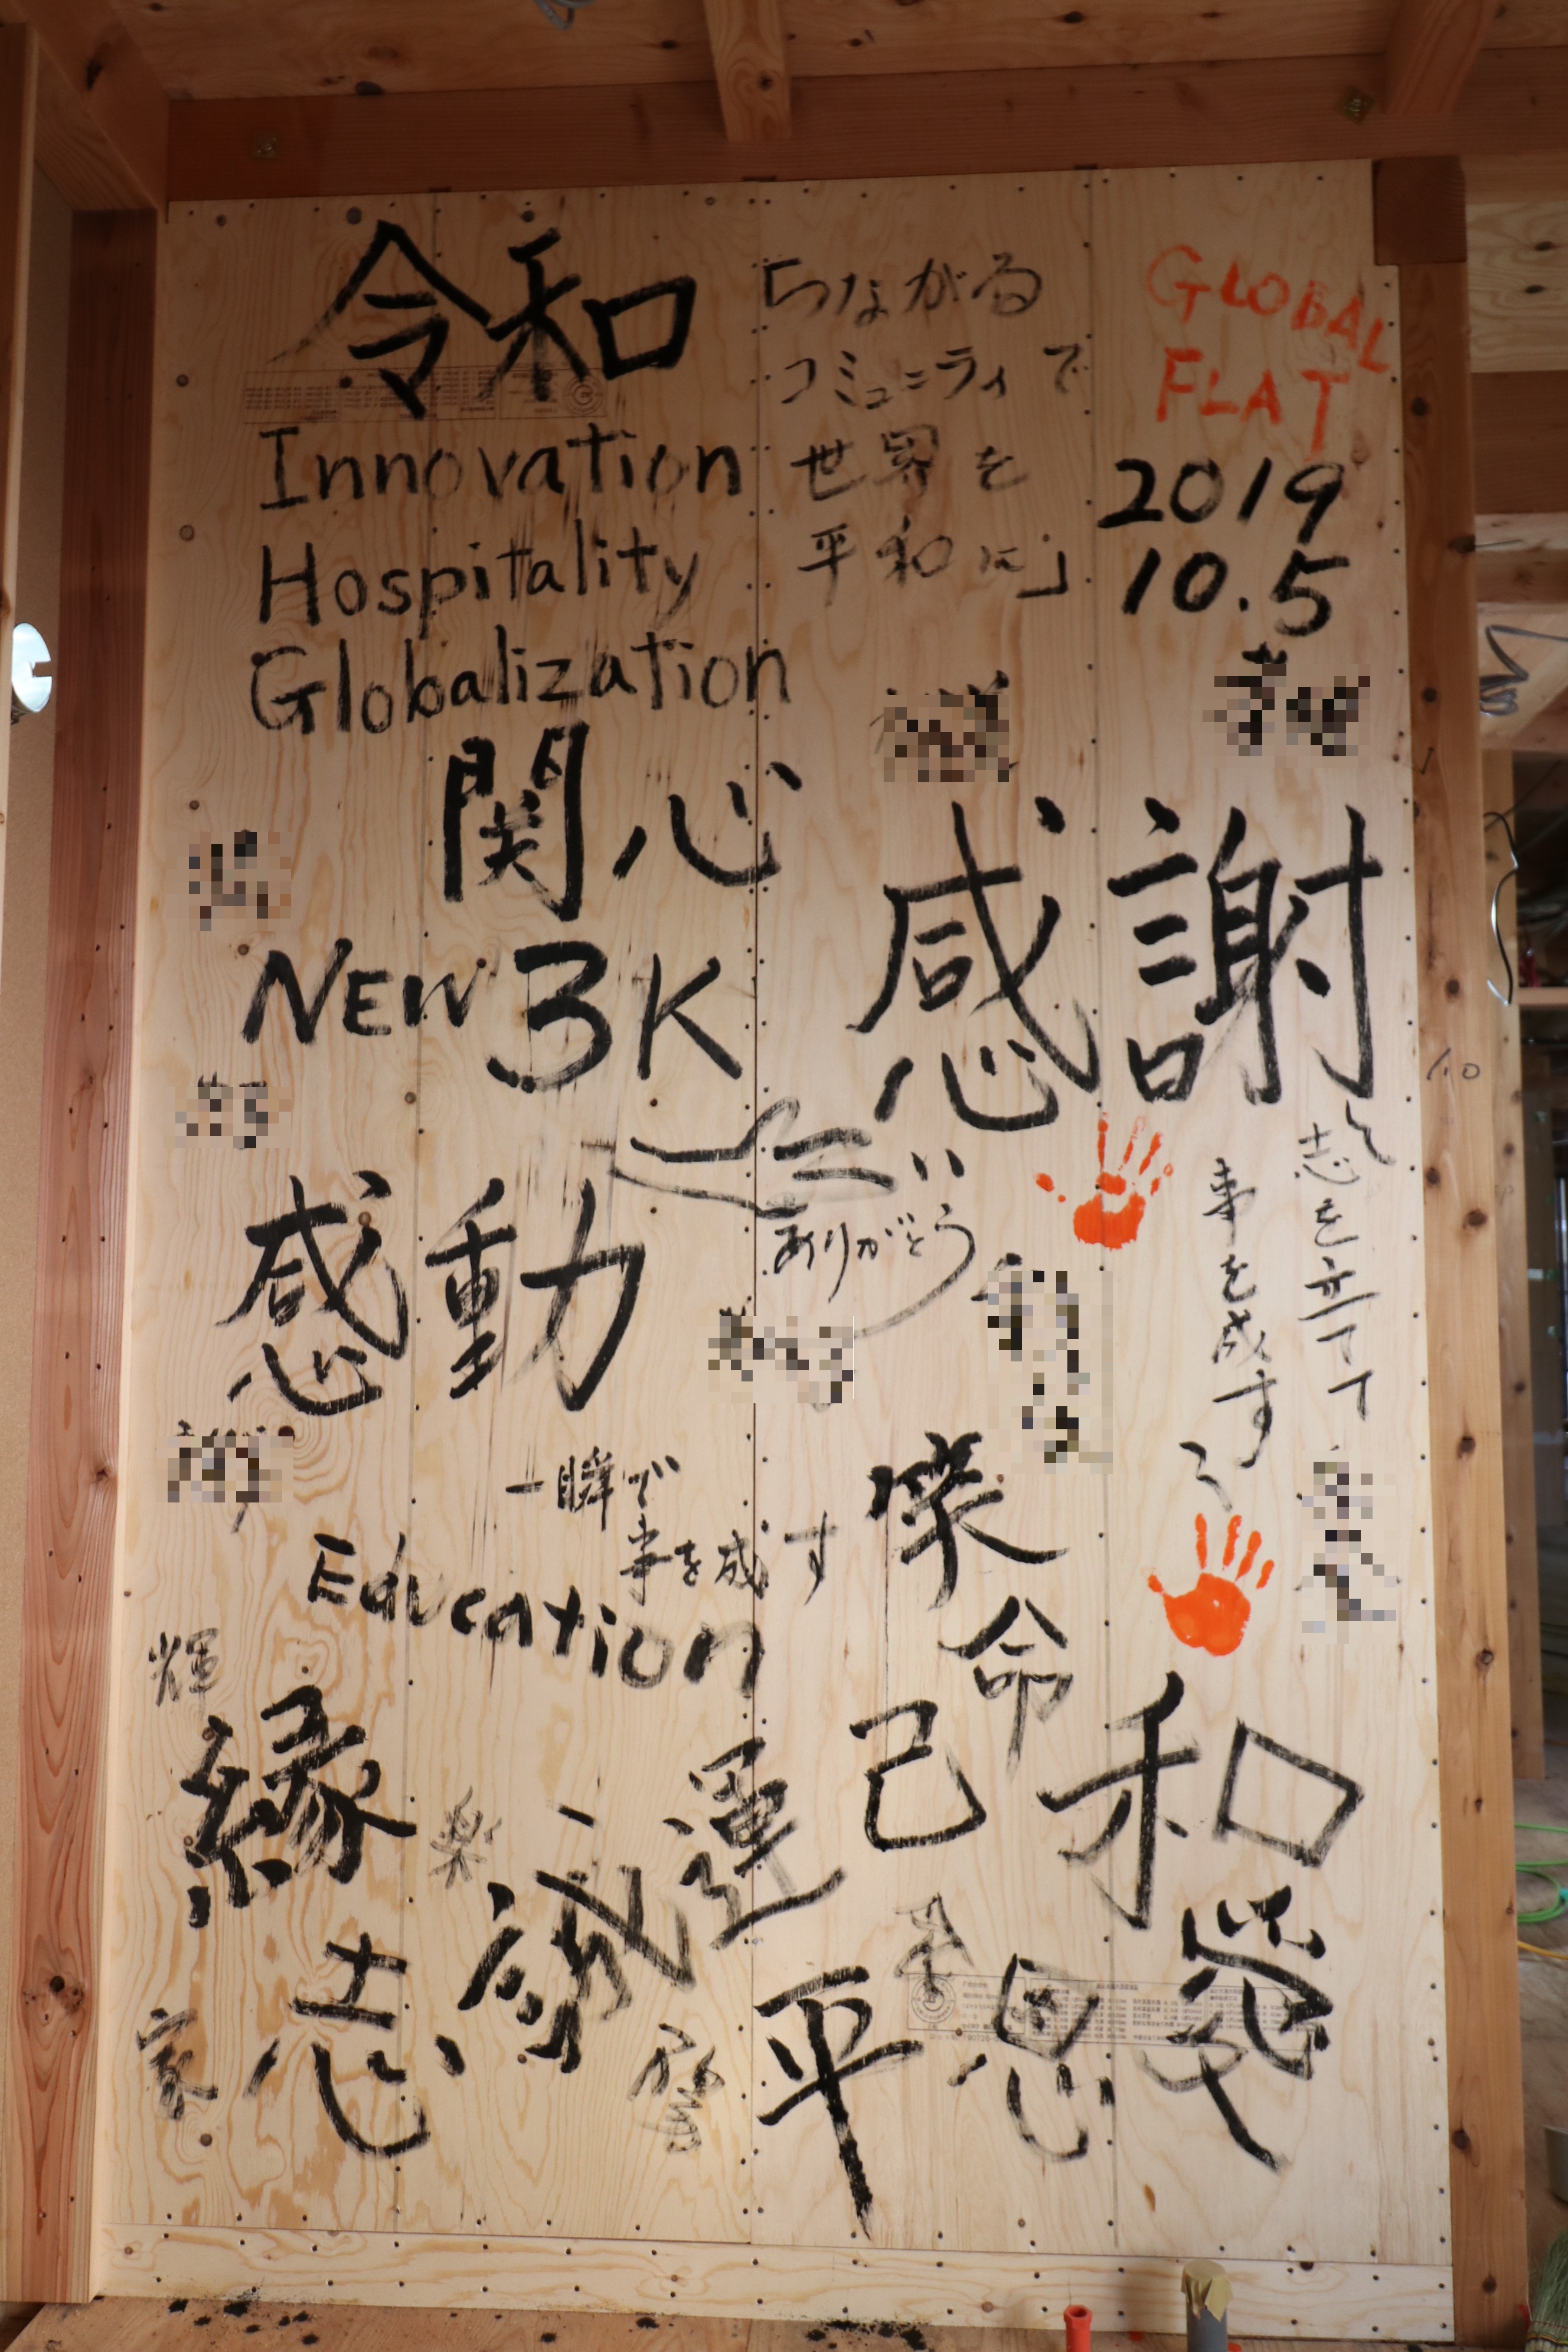 令和
Innovation
Hospitality
Globalization
「つながる
コミュニティで
世界を
平和に」
GLOBAL
FLAT
2019
10.5
関心
NEW 3K
感謝
感動
ありがとう
志を立てて
事を成す
一瞬で
事を成す
Education
命
輝
縁
楽
誠
運
己
和
志
家
平
恩
愛